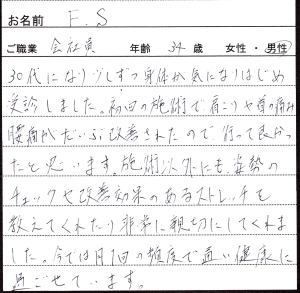 お名前 F.S
ご職業 会社員 年齢 34 歳 女性・男性
30代になり少しずつ身体が気になりはじめ
受診しました。初回の施術で肩こりや首の痛み
腰痛がだいぶ改善されたので行って良かっ
たと思います。施術以外にも、姿勢の
チェックや改善効果のあるストレッチを
教えてくれたり非常に親切にしてくれま
した。今では月1回の頻度で通い健康に
過ごせています。